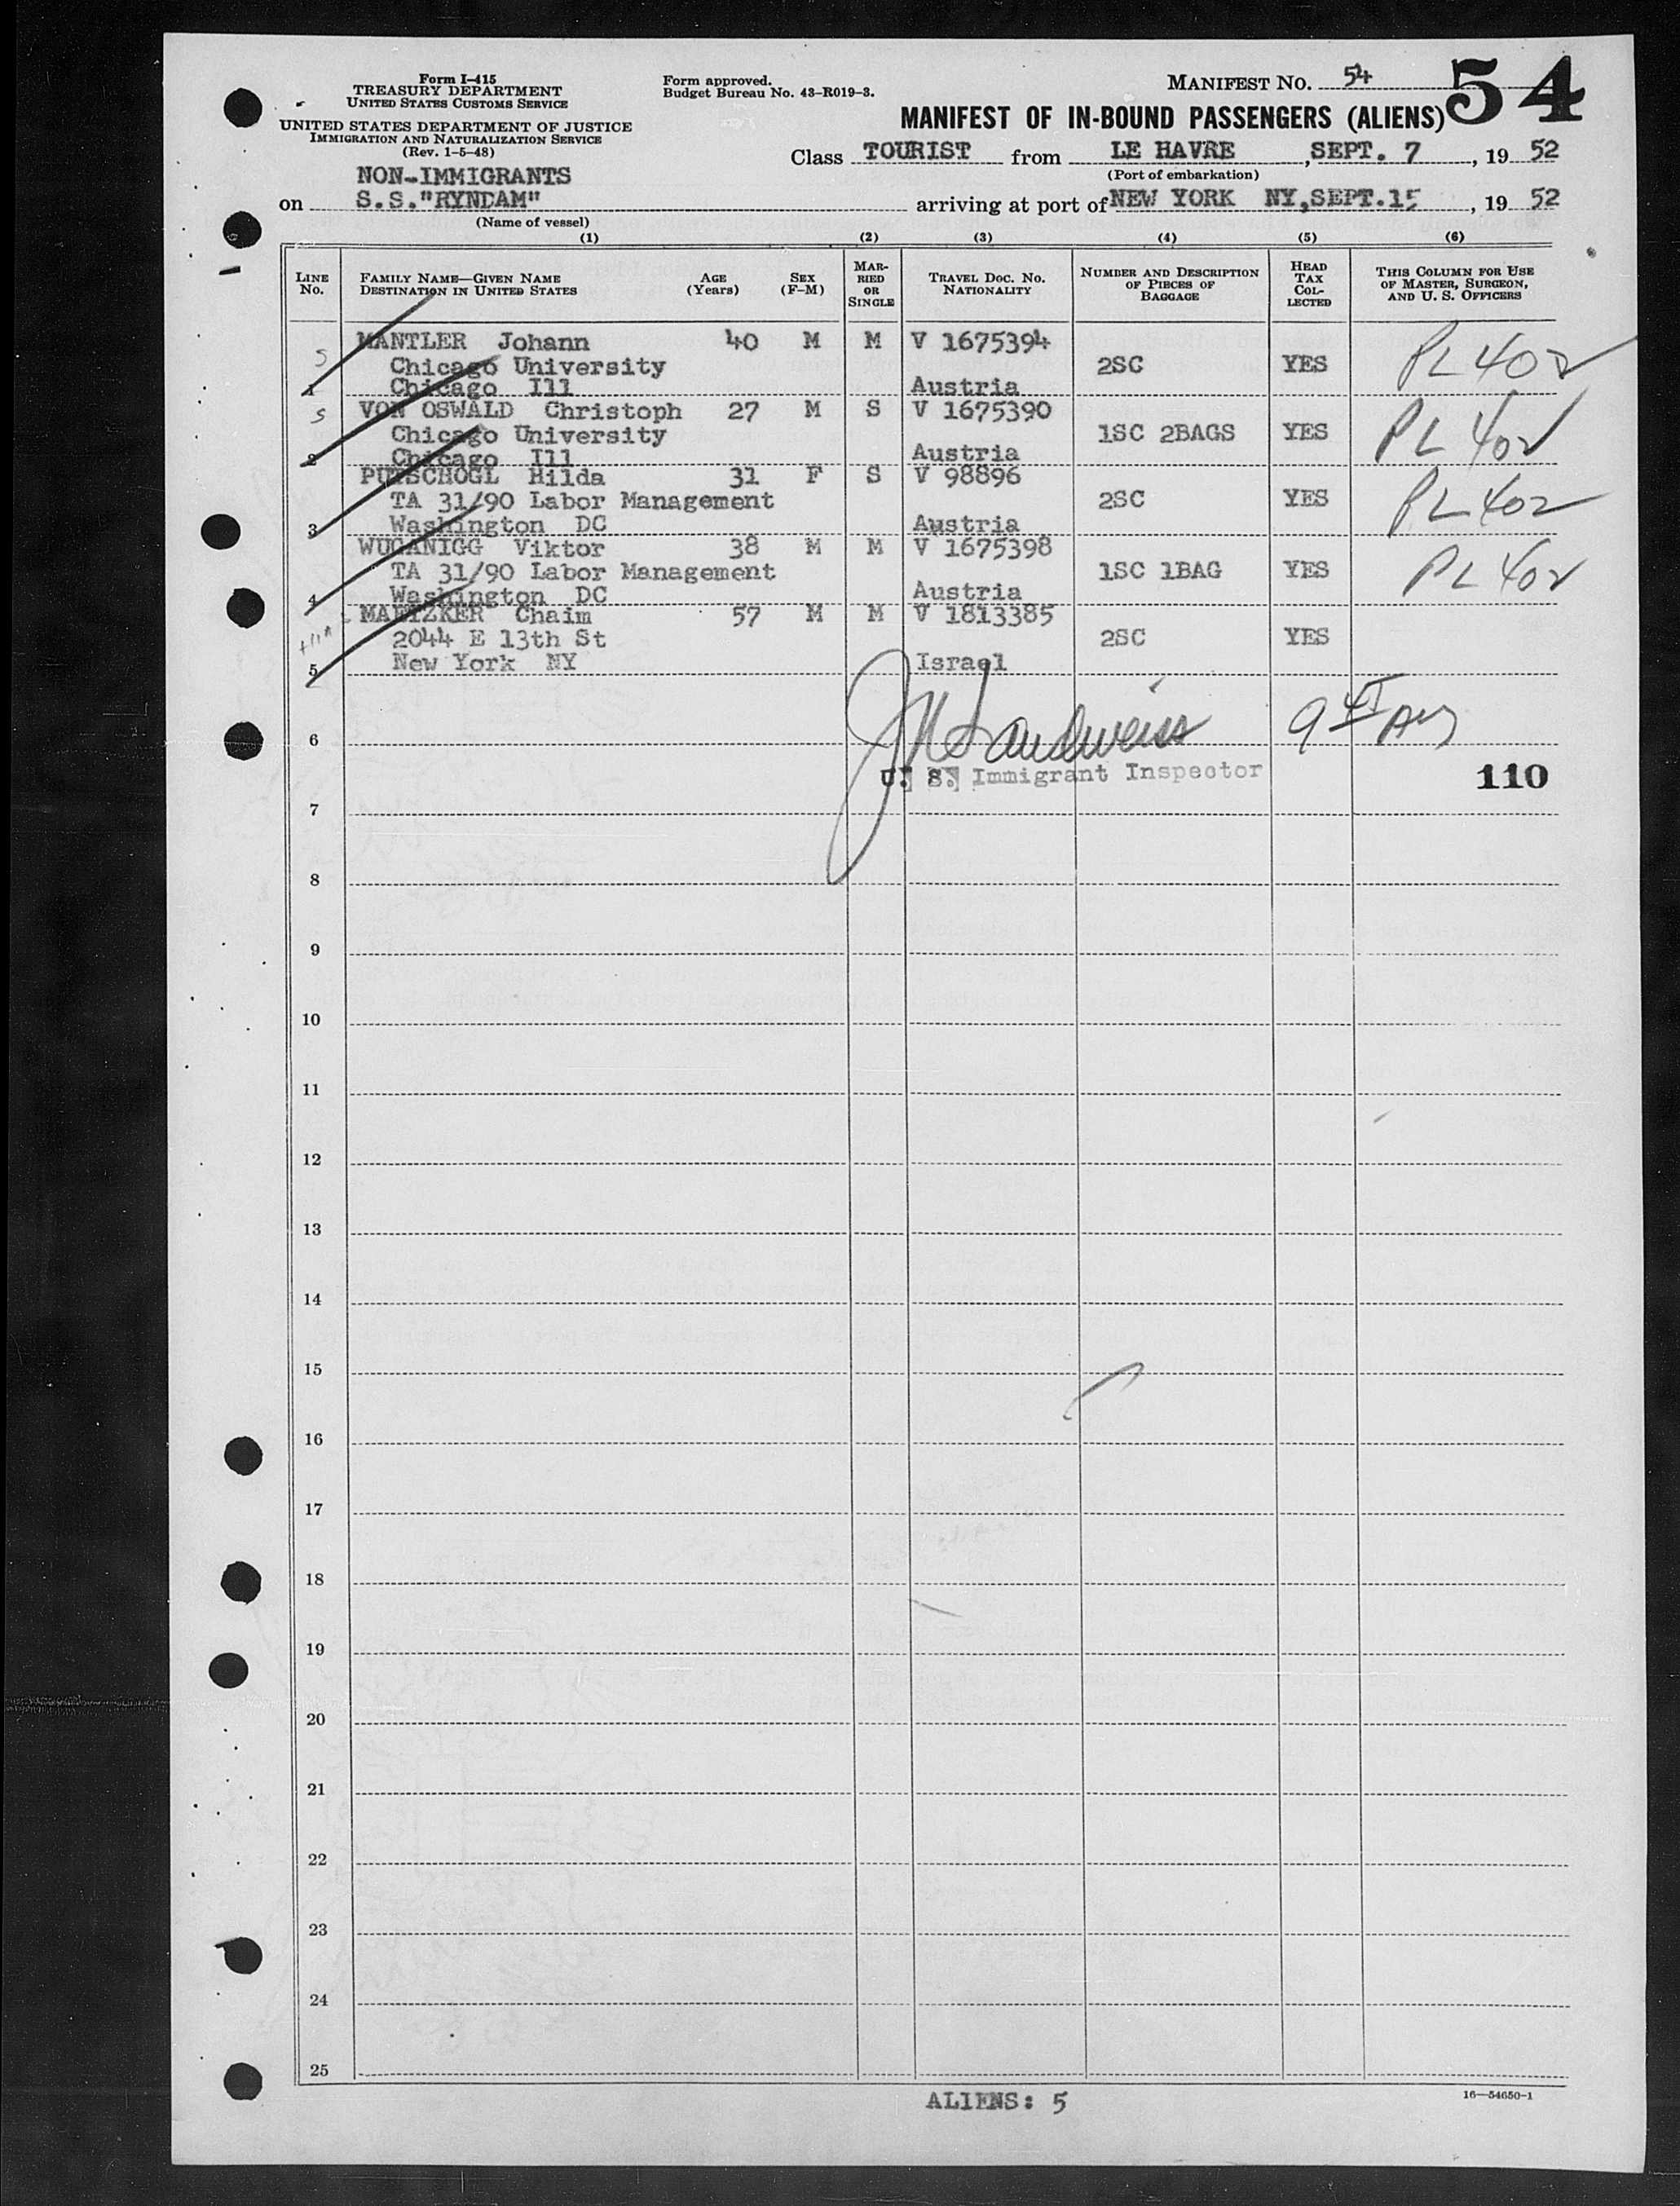 Form I-415
TREASURY DEPARTMENT
UNITED STATES CUSTOMS SERVICE
UNITED STATES DEPARTMENT OF JUSTICE
IMMIGRATION AND NATURALIZATION SERVICE
(Rev. 1-5-48)
Form approved.
Budget Bureau No. 43-R019-3.
MANIFEST NO. 54
54
MANIFEST OF IN-BOUND PASSENGERS (ALIENS)
Class TOURIST from LE HAVRE, SEPT. 7, 1952
(Port of embarkation)
NON-IMMIGRANTS
on S.S."RYNDAM" arriving at port of NEW YORK NY, SEPT.15, 1952
(Name of vessel)
(1) (2) (3) (4) (5) (6)
LINE No. FAMILY NAME—GIVEN NAME DESTINATION IN UNITED STATES AGE (Years) SEX (F-M) MARRIED OR SINGLE TRAVEL DOC. NO. NATIONALITY NUMBER AND DESCRIPTION OF PIECES OF BAGGAGE HEAD TAX COLLECTED THIS COLUMN FOR USE OF MASTER, SURGEON, AND U. S. OFFICERS
MANTLER Johann 40 M M V 1675394
S Chicago University 2SC YES PL 402
1 Chicago Ill Austria
S VON OSWALD Christoph 27 M S V 1675390
Chicago University 1SC 2BAGS YES PL 402
2 Chicago Ill Austria
Hilda 31 F S V 98896
TA 31/90 Labor Management 2SC YES PL 402
3 Washington DC Austria
WUGANIGG Viktor 38 M M V 1675398
TA 31/90 Labor Management 1SC 1BAG YES PL 402
4 Washington DC Austria
Chaim 57 M M V 1813385
2044 E 13th St 2SC YES
5 New York NY Israel
6
U. S. Immigrant Inspector 110
7
8
9
10
11
12
13
14
15
16
17
18
19
20
21
22
23
24
25
ALIENS: 5
16—54650-1